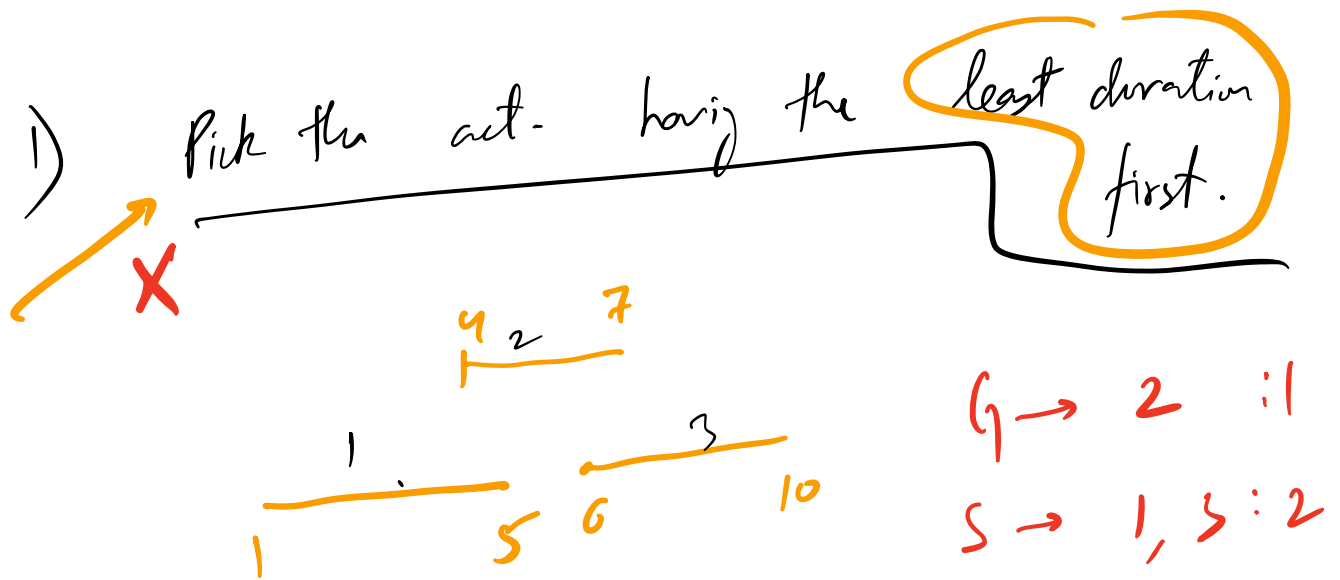 1) Pick the act. having the least duration
first.
X
4 2 7
1 3
1 5 6 10
G → 2 : 1
S → 1, 3 : 2